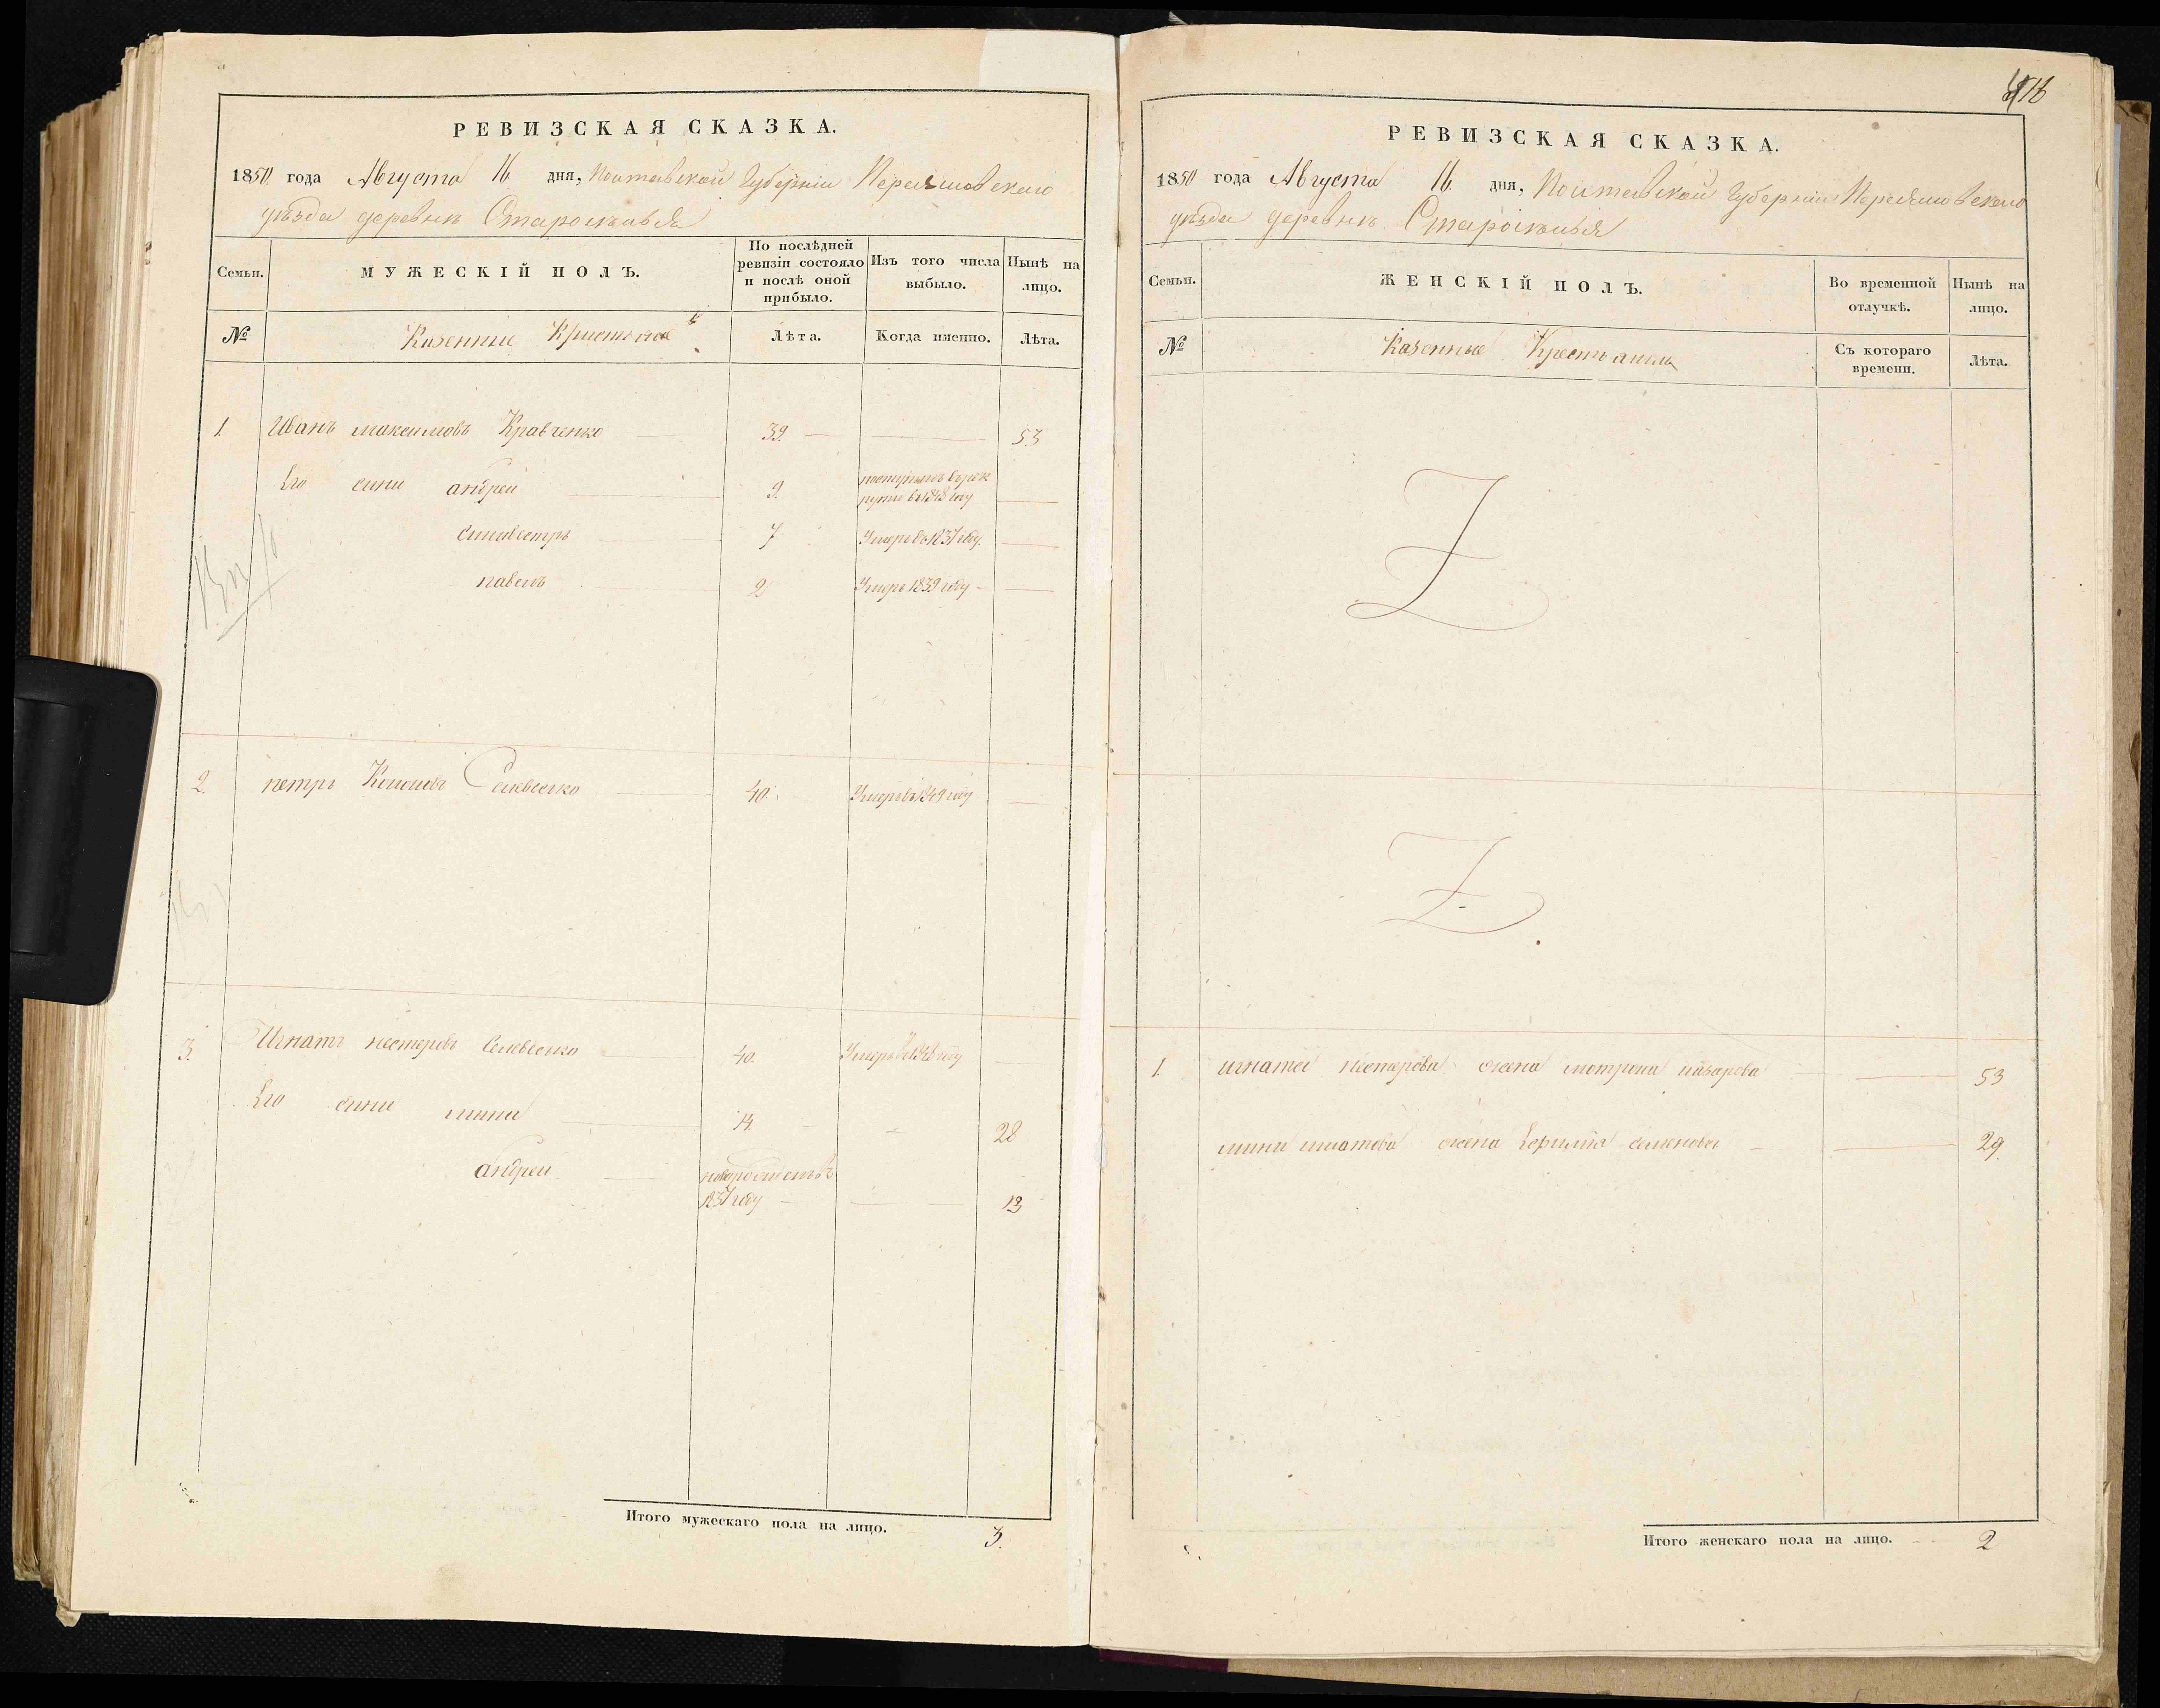 РЕВИЗСКАЯ СКАЗКА.
1850 года Августа 16 дня, Полтавской Губерніи Переяславского
уѣзда деревнѣ
Семьи.
МУЖЕСКІЙ ПОЛЪ.
По послѣдней ревизіи состояло и послѣ оной прибыло.
Изъ того числа выбыло.
Нынѣ на лицо.
№
Казенные
Лѣта.
Когда именно.
Лѣта.
1. Иванъ максимовъ Кравченко 39. 53
Его сини андрей 9. 1848 году
силивестръ 7 Умеръ въ 1837 году.
павелъ 2 Умеръ 1839 году
2. петръ 40. Умеръ въ 1849 году
3. Игнатъ нестеровъ 40. Умеръ въ 1848 году
Его сини мина 14. 28
андрей
1837 году 13
Итого мужескаго пола на лицо. 3.
516
РЕВИЗСКАЯ СКАЗКА.
1850 года Августа 16 дня, Полтавской Губерніи Переяславского
уѣзда деревнѣ
Семьи.
ЖЕНСКІЙ ПОЛЪ.
Во временной отлучкѣ.
Нынѣ на лицо.
№
Казенные
Съ котораго времени.
Лѣта.
Z
Z
1. нестерова жена мотрона назарова 53
мини игнатова жена 29.
Итого женскаго пола на лицо. 2